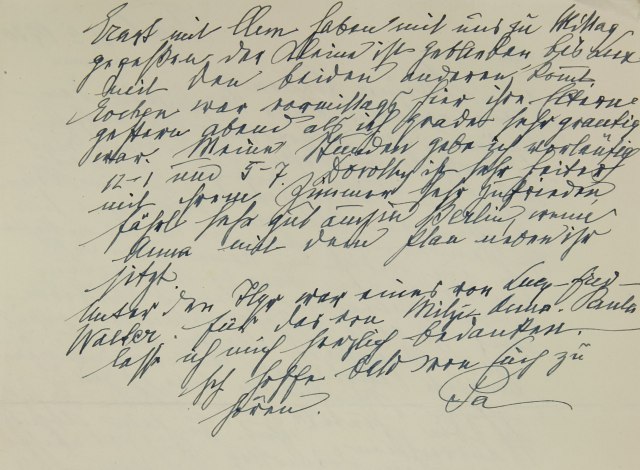 Ernst mit Clem haben mit uns zu Mittag
gegessen, der Kleine ist geblieben bis
mit den beiden anderen kommt
war vormittags hier ihre Eltern
gestern abend als ich grade sehr grantig
war. Meine Stunden gebe ich vorläufig
12-1 und 5-7. Dorothy ist sehr heiter
mit ihrem Zimmer sehr zufrieden,
fährt sehr gut auch in Berlin, wenn
Anna mit dem Plan neben ihr
sitzt.
Unter den war eines von Lucy -
Walter. für das von Mitzi - Anna - Paula
lasse ich mich herzlich bedanken.
Ich hoffe bald von Euch zu
hören. Pa